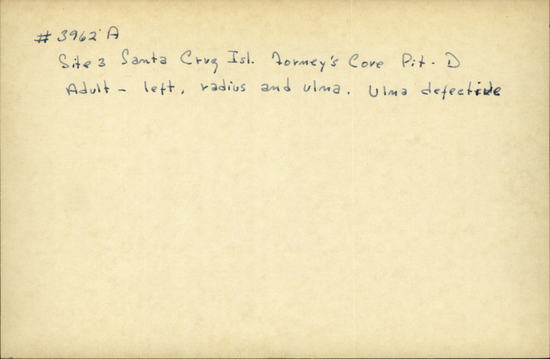 #3962 A
Site 3 Santa Cruz Isl. Forney's Cove Pit-D
Adult - left, radius and ulna. Ulna defective